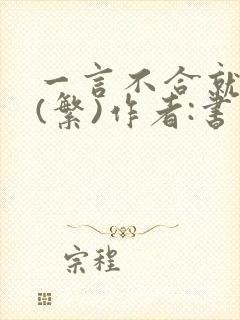 一言不合就
(繁)作者:書
宗程